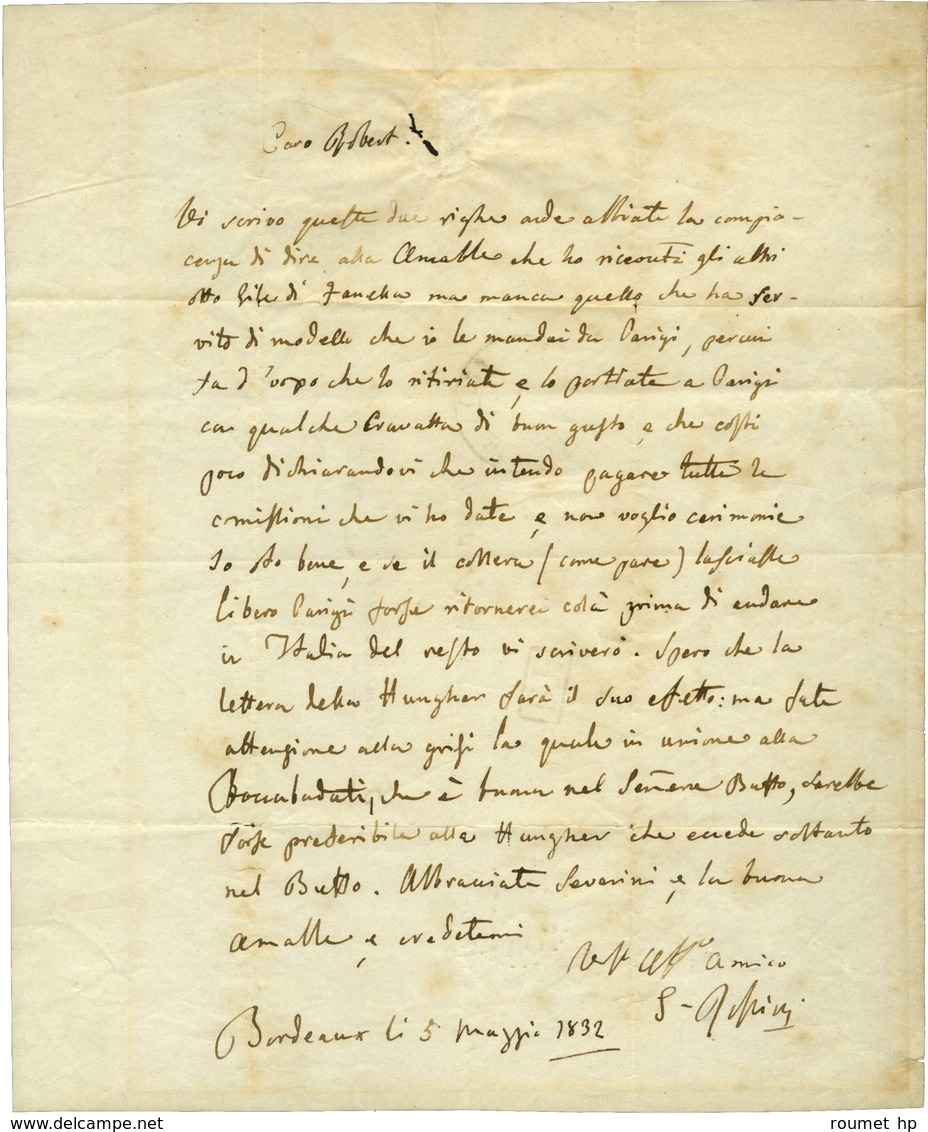 Caro Robert.
Vi scrivo queste due righe onde abbiate la compia-
cenza di dire alla Amable che ho ricevuti gli altri
otto Gilé di fanella ma manca quello che ha ser-
vito di modello che io le mandai da Parigi, percui
fa d'uopo che lo ritiriate e, lo portiate a Parigi
con qualche Cravatta di buon gusto, e che costi
poco dichiarandovi che intendo pagare tutte le
comissioni che vi ho date, e non voglio cerimonie
Io sto bene, e se il collera (come pare) lasciasse
libero Parigi forse ritornerei colà prima di andare
in Italia del resto vi scriverò. Spero che la
lettera della Hungher farà il suo effetto: ma fate
attenzione alla grisi la quale in unione alla
Boccabadati, che è buona nel Genere Buffo, sarebbe
forse preferibile alla Hungher che eccede soltanto
nel Buffo. Abbracciate Severini e, la buona
Amable e, credetemi
Vost Aff.o Amico
G- Rossini
Bordeaux li 5 Maggio 1832
roumet hp